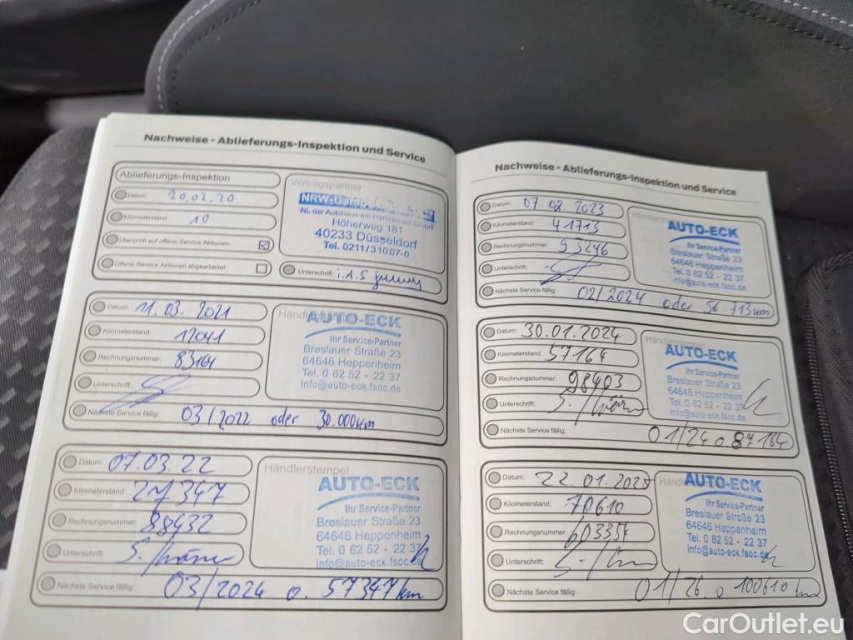 Nachweise - Ablieferungs-Inspektion und Service
Ablieferungs-Inspektion
Datum: 20.02.20
Kilometerstand: 10
Überprüft auf offene Service Aktionen:
Offene Service Aktionen abgearbeitet:
Vertragspartner
Höherweg 181
40233 Düsseldorf
Tel. 0211/31007-0
Unterschrift: i.A.S
Datum: 11.03.2021
Kilometerstand: 12041
Rechnungsnummer: 83164
Unterschrift:
Nächste Service fällig: 03/2022 oder 30.000km
AUTO-ECK
Ihr Service-Partner
Breslauer Straße 23
64646 Heppenheim
Tel. 0 62 52 - 22 37
info@auto-eck.fsoc.de
Datum: 07.03.22
Kilometerstand: 27347
Rechnungsnummer: 88432
Unterschrift:
Nächste Service fällig: 03/2024 o. 57347 km
Händlerstempel
AUTO-ECK
Ihr Service-Partner
Breslauer Straße 23
64646 Heppenheim
Tel. 0 62 52 - 22 37
info@auto-eck.fsoc.de
Nachweise - Ablieferungs-Inspektion und Service
Datum: 07 02 2023
Kilometerstand: 41713
Rechnungsnummer: 93246
Unterschrift:
Nächste Service fällig: 02/2024 oder 56 713km
AUTO-ECK
Ihr Service-Partner
Breslauer Straße 23
64646 Heppenheim
Tel. 0 62 52 - 22 37
info@auto-eck.fsoc.de
Datum: 30.01.2024
Kilometerstand: 57164
Rechnungsnummer: 98403
Unterschrift:
Nächste Service fällig: 01/24 o 87164
AUTO-ECK
Ihr Service-Partner
Breslauer Straße 23
64646 Heppenheim
Tel. 0 62 52 - 22 37
info@auto-eck.fsoc.de
Datum: 22.01.2025
Kilometerstand: 70610
Rechnungsnummer: 603354
Unterschrift:
Nächste Service fällig: 01/26 o 100610 km
AUTO-ECK
Ihr Service-Partner
Breslauer Straße 23
64646 Heppenheim
Tel. 0 62 52 - 22 37
info@auto-eck.fsoc.de
CarOutlet.eu